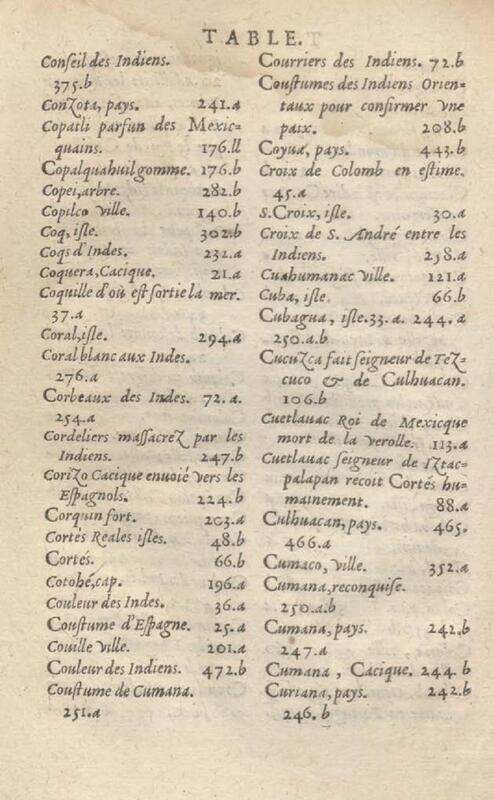 TABLE.
Conseil des Indiens.
375.b
ConZota, pays. 241.a
Copatli parfun des Mexic-
quains. 176.ll
Copalquahuil gomme. 176.b
Copei, arbre. 282.b
Copilco ville. 140.b
Coq, isle. 302.b
Coqs d'Indes. 232.a
Coquera, Cacique. 21.a
Coquille d'où est sortie la mer.
37.a
Coral, isle. 294.a
Coral blanc aux Indes.
276.a
Corbeaux des Indes. 72.a.
254.a
Cordeliers massacreZ par les
Indiens. 247.b
CoriZo Cacique envoié vers les
Espagnols. 224.b
Corquin fort. 203.a
Cortes Reales isles. 48.b
Cortés. 66.b
Cotohé, cap. 196.a
Couleur des Indes. 36.a
Coustume d'Espagne. 25.a
Couille ville. 201.a
Couleur des Indiens. 472.b
Coustume de Cumana.
251.a
Courriers des Indiens. 72.b
Coustumes des Indiens Orien-
taux pour confirmer vne
paix. 208.b
Coyua, pays. 443.b
Croix de Colomb en estime.
45.a
S. Croix, isle. 30.a
Croix de S. André entre les
Indiens. 258.a
Cuahumanac ville. 121.a
Cuba, isle 66.b
Cubagua, isle. 33.a. 244.a
250.a.b
CucuZca fait seigneur de TeZ-
cuco & de Culhuacan.
106.b
Cuetlauac Roi de Mexicque
mort de la verolle. 113.a
Cuetlauac seigneur de IZtac-
palapan recoit Cortés hu-
mainement. 88.a
Culhuacan, pays. 465.
466.a
Cumaco, ville. 352.a
Cumana, reconquise.
250.a.b
Cumana, pays. 242.b
247.a
Cumana, Cacique. 244.b
Curiana, pays. 242.b
246.b